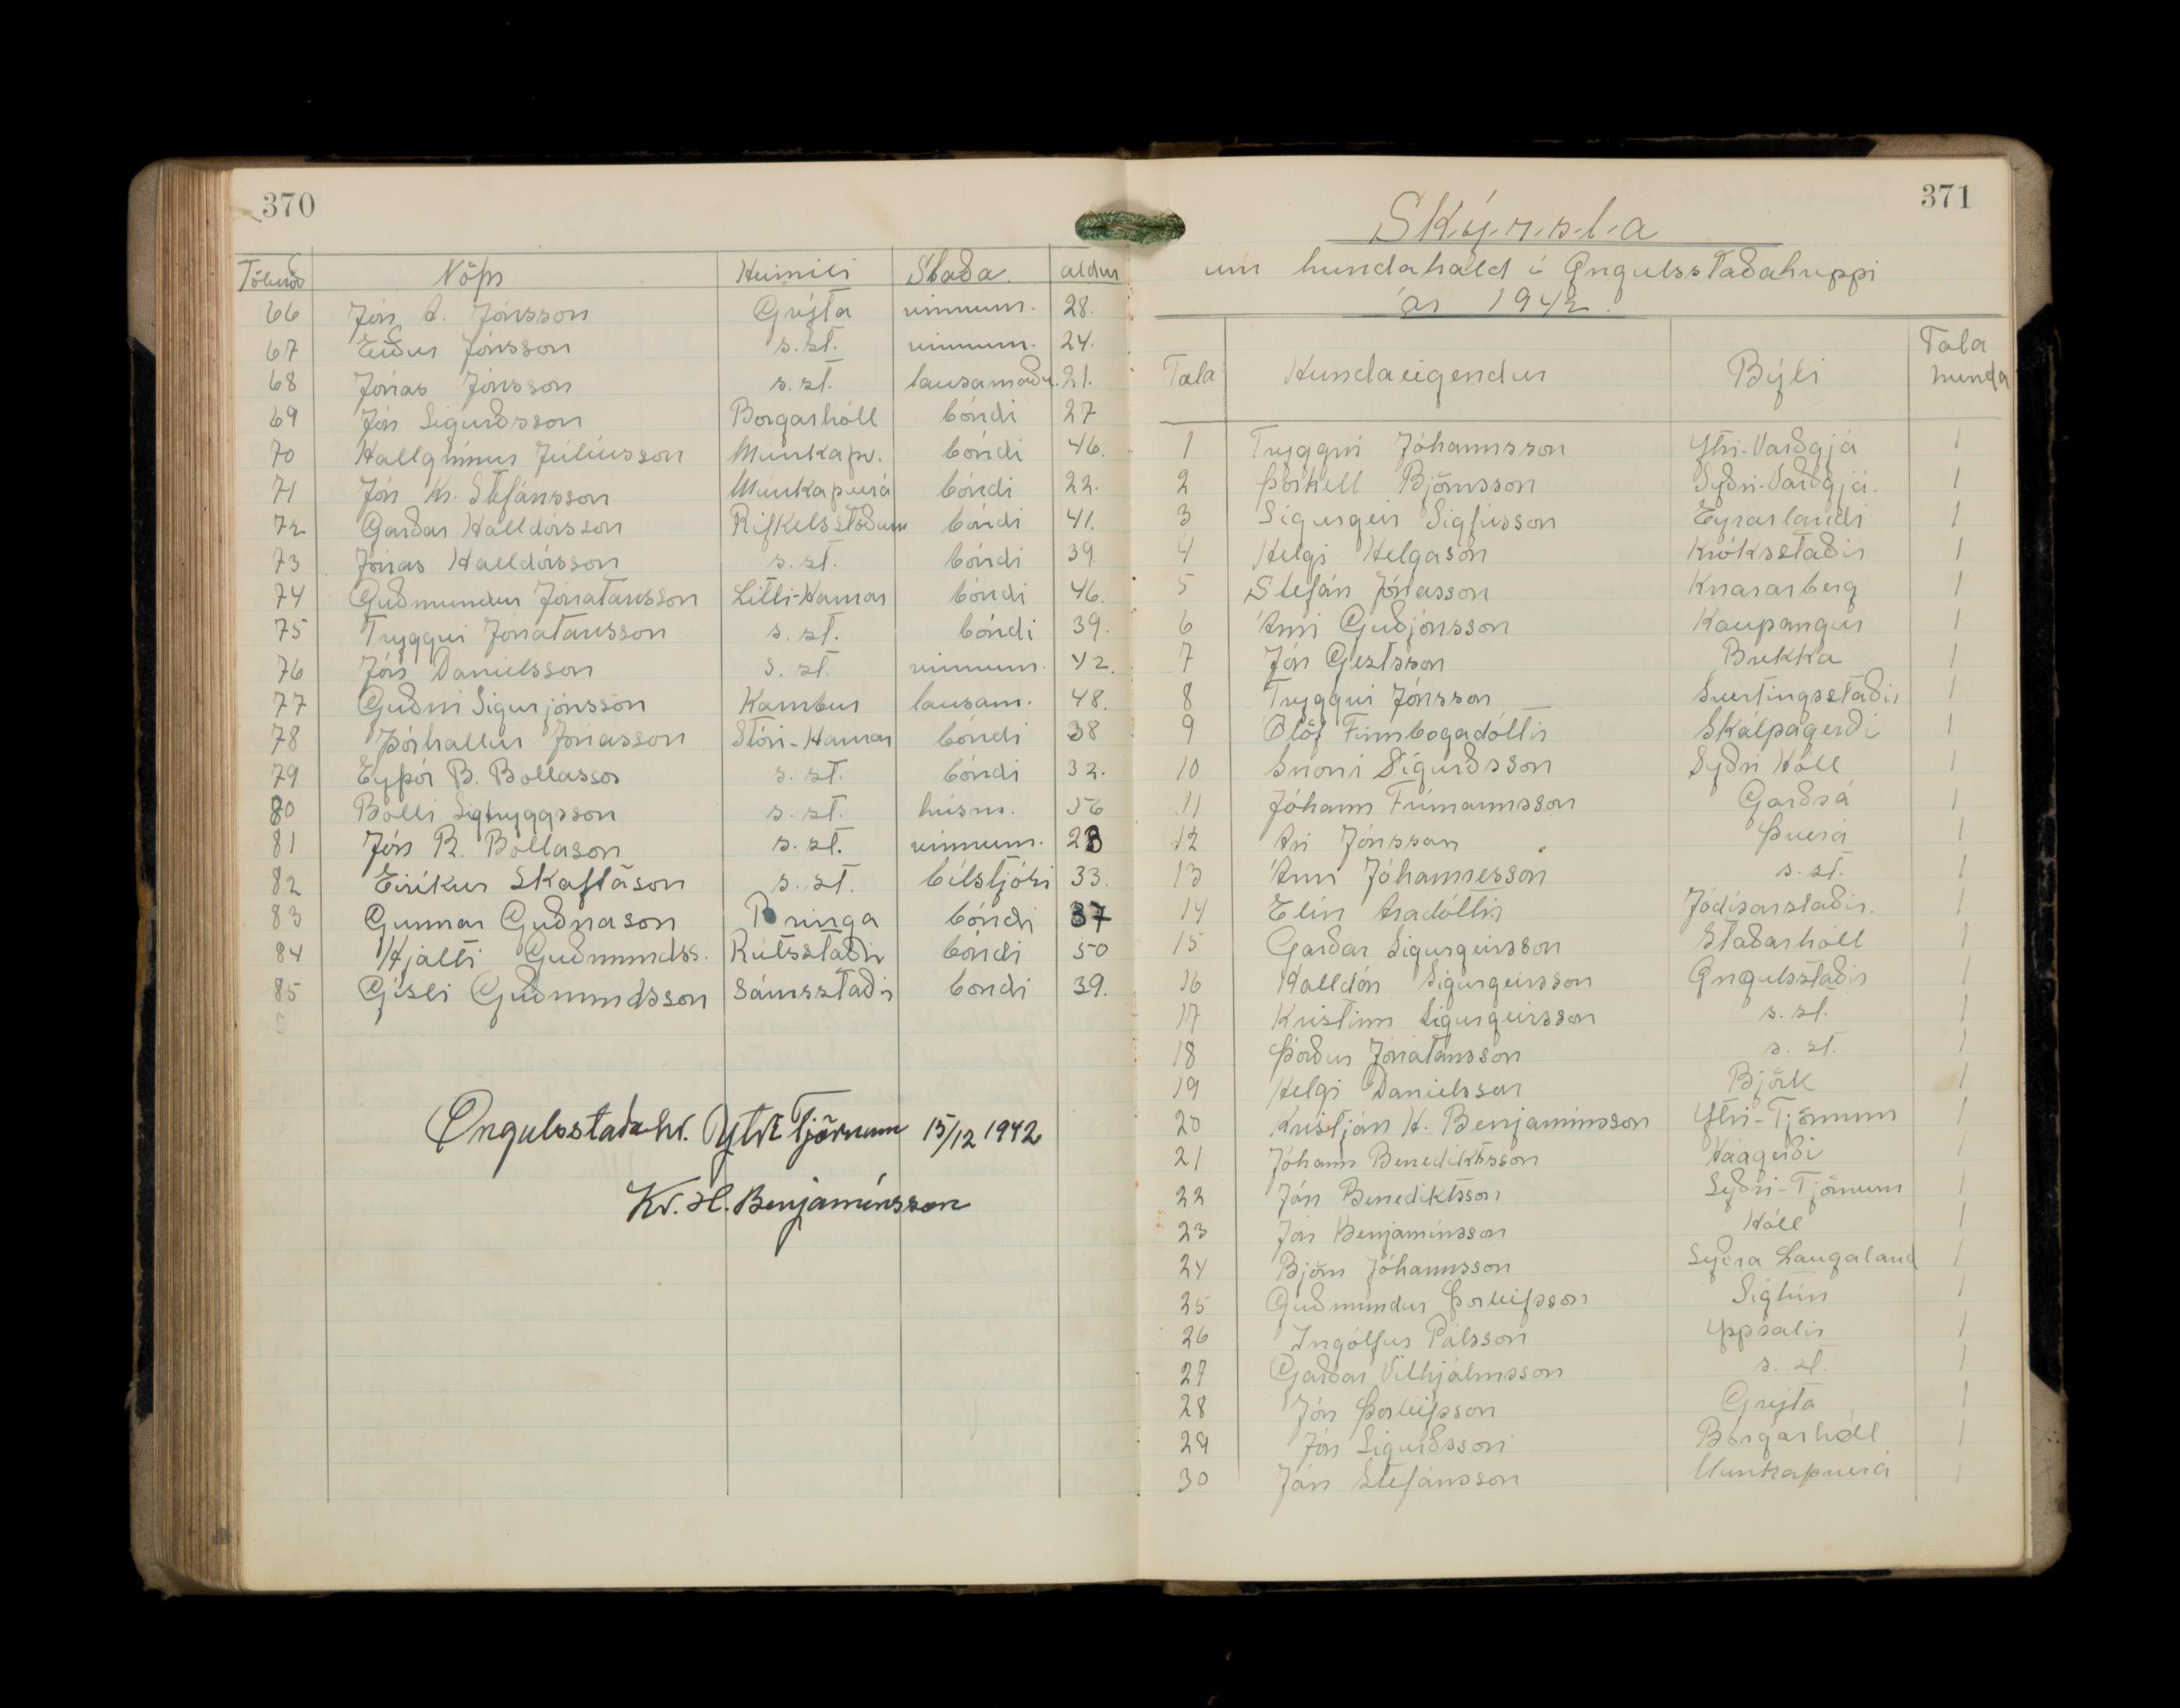 370
Töluröð Nöfn Heimili Staða. aldur
66 Jón A. Jónsson Grýta vinnum. 28.
67 Eiður Jónsson s.st. vinnum. 24.
68 Jónas Jónsson s.st. lausamaður. 21.
69 Jón Sigurðsson Borgarhóll bóndi 27
70 Hallgrímur Júlíusson Munkaþv. bóndi 46.
71 Jón Kr. Stefánsson Munkaþverá bóndi 22.
72 Garðar Halldórsson Rifkelsstöðum bóndi 41.
73 Jónas Halldórsson s.st. bóndi 39.
74 Guðmundur Jónatansson Litli-Hamar bóndi 46.
75 Tryggvi Jónatansson s.st. bóndi 39.
76 Jón Daníelsson s.st. vinnum. 42.
77 Guðni Sigurjónsson Kambur lausam. 48.
78 Þórhallur Jónasson Stóri-Hamar bóndi 38
79 Eyþór B. Bollason s.st. bóndi 32.
80 Bolli Sigtryggsson s.st. húsm. 56
81 Jón R. Bollason s.st. vinnum. 28
82 Eiríkur Skaftason s.st. bílstjóri 33.
83 Gunnar Guðnason Bringa bóndi 37
84 Hjalti Guðmundss. Rútsstaðir bóndi 50
85 Gísli Guðmundsson Sámsstaðir bóndi 39.
Öngulsstaðahr. Ytri Tjörnum 15/12 1942
Kr. H. Benjamínsson
371
Skýrsla
um hundahald í Öngulsstaðahreppi
ár 1942.
Tala Hundaeigendur Býli Tala hunda
1 Tryggvi Jóhannsson Ytri-Varðgjá 1
2 Þorkell Björnsson Syðri-Varðgjá. 1
3 Sigurgeir Sigfússon Eyrarlandi 1
4 Helgi Helgason Króksstaðir 1
5 Stefán Jónasson Knararberg 1
6 Árni Guðjónsson Kaupangur 1
7 Jón Gestsson Brekka 1
8 Tryggvi Jónsson Svertingsstaðir 1
9 Ólöf Finnbogadóttir Skálpagerði 1
10 Snorri Sigurðsson Syðri Hóll 1
11 Jóhann Frímannsson Garðsá 1
12 Ari Jónsson Þverá 1
13 Árni Jóhannesson s.st. 1
14 Elín Aradóttir Jódísarstaðir. 1
15 Garðar Sigurgeirsson Staðarhóll 1
16 Halldór Sigurgeirsson Öngulsstaðir 1
17 Kristinn Sigurgeirsson s.st. 1
18 Þórður Jónatansson s.st. 1
19 Helgi Daníelsson Björk 1
20 Kristján H. Benjamínsson Ytri-Tjörnum 1
21 Jóhann Benediktsson Háagerði 1
22 Jón Benediktsson Syðri-Tjörnum 1
23 Jón Benjamínsson Hóll 1
24 Björn Jóhannsson Syðra Laugaland 1
25 Guðmundur Þorleifsson Sigtún 1
26 Ingólfur Pálsson Uppsalir 1
27 Garðar Vilhjálmsson s.st. 1
28 Jón Þorleifsson Grýta 1
29 Jón Sigurðsson Borgarhóll 1
30 Jón Stefánsson Munkaþverá 1